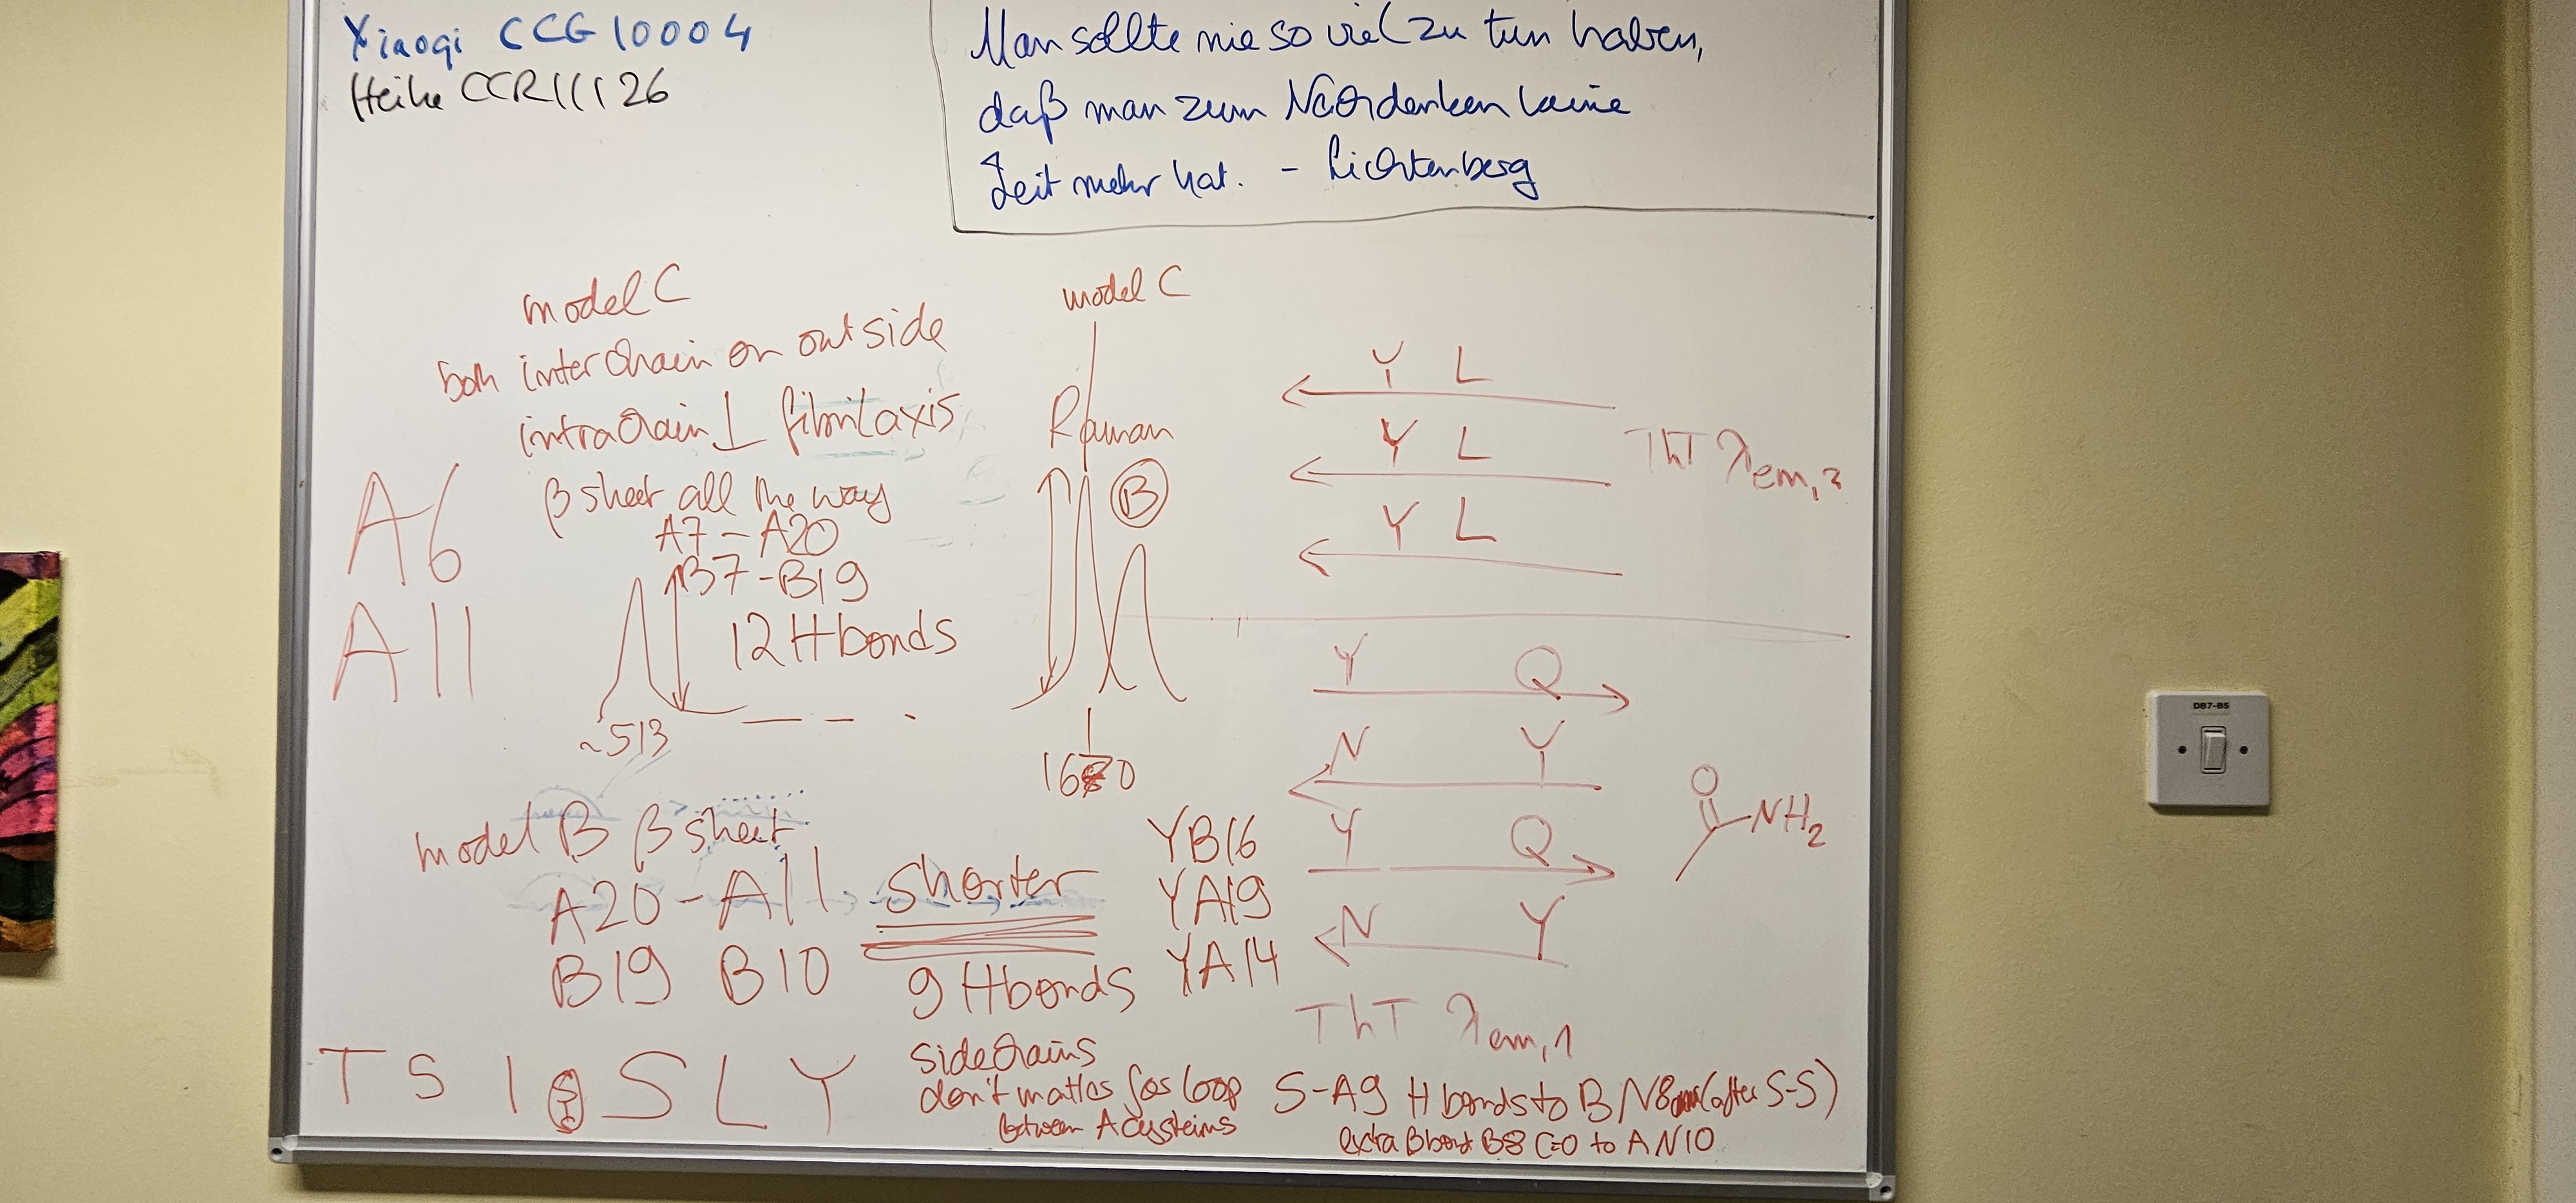 Xiaoqi CCG10004
Heike CCR11126
Man sollte nie so viel zu tun haben,
daß man zum Nachdenken keine
Zeit mehr hat. - Lichtenberg
model C
both interchain on outside
intrachain ⊥ fibril axis
β sheet all the way
A7 - A20
B7 - B19
12 H bonds
~513
A6
A11
model C
Raman
B
1670
Y L
Y L
Y L
ThT λem,2
Y Q
N Y
Y Q
N Y
ThT λem,1
O
NH2
model B β sheet
A20 - A11 shorter
B19 B10
9 H bonds
YB16
YA19
YA14
T S I S L Y
sidechains
don't matter for loop
between A cysteins
S-A9 H bonds to B N8 (after S-S)
extra β bond B8 C=O to A N10
DB7-B5